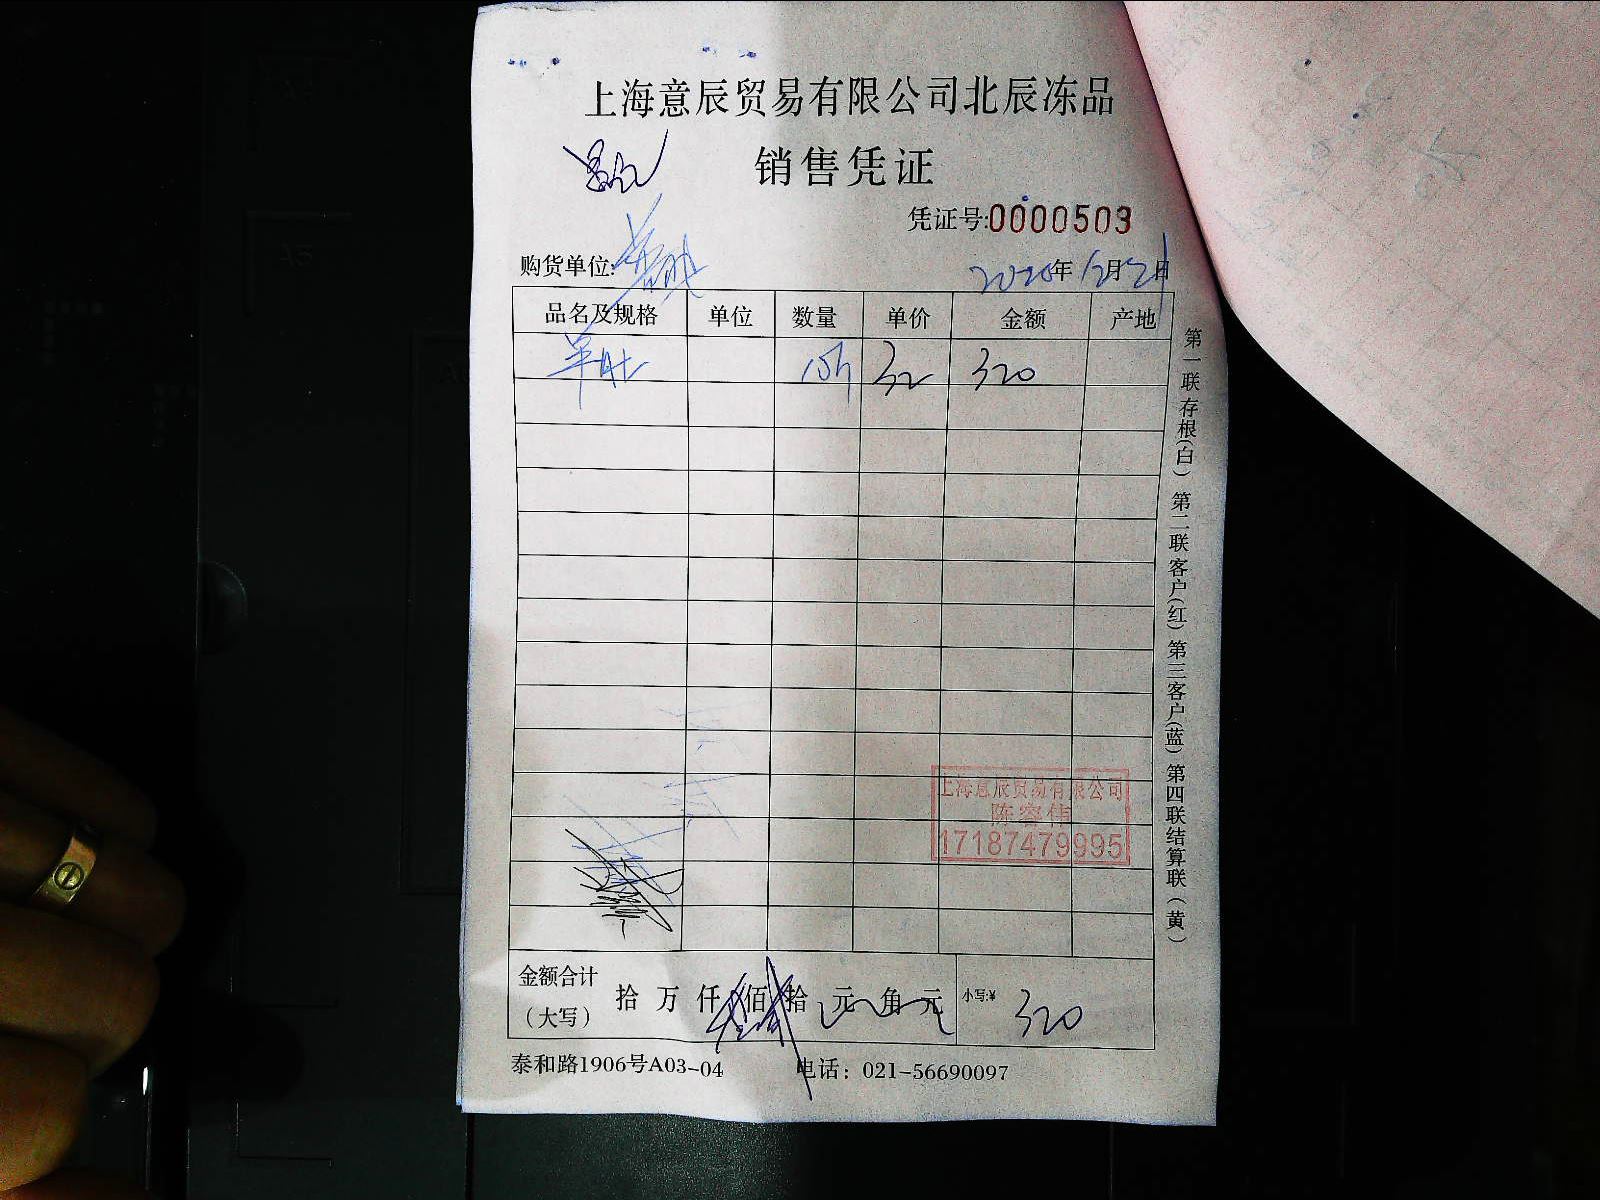 上海意辰贸易有限公司北辰冻品
销售凭证
凭证号:0000503
购货单位:
2020年12月21日
品名及规格 单位 数量 单价 金额 产地
羊肚 10斤 32 320
第一联存根(白) 第二联客户(红) 第三客户(蓝) 第四联结算联(黄)
上海意辰贸易有限公司
陈容伟
17187479995
金额合计
(大写)
拾 万 仟 佰 拾 元 角 元 小写:¥ 320
泰和路1906号A03-04 电话：021-56690097